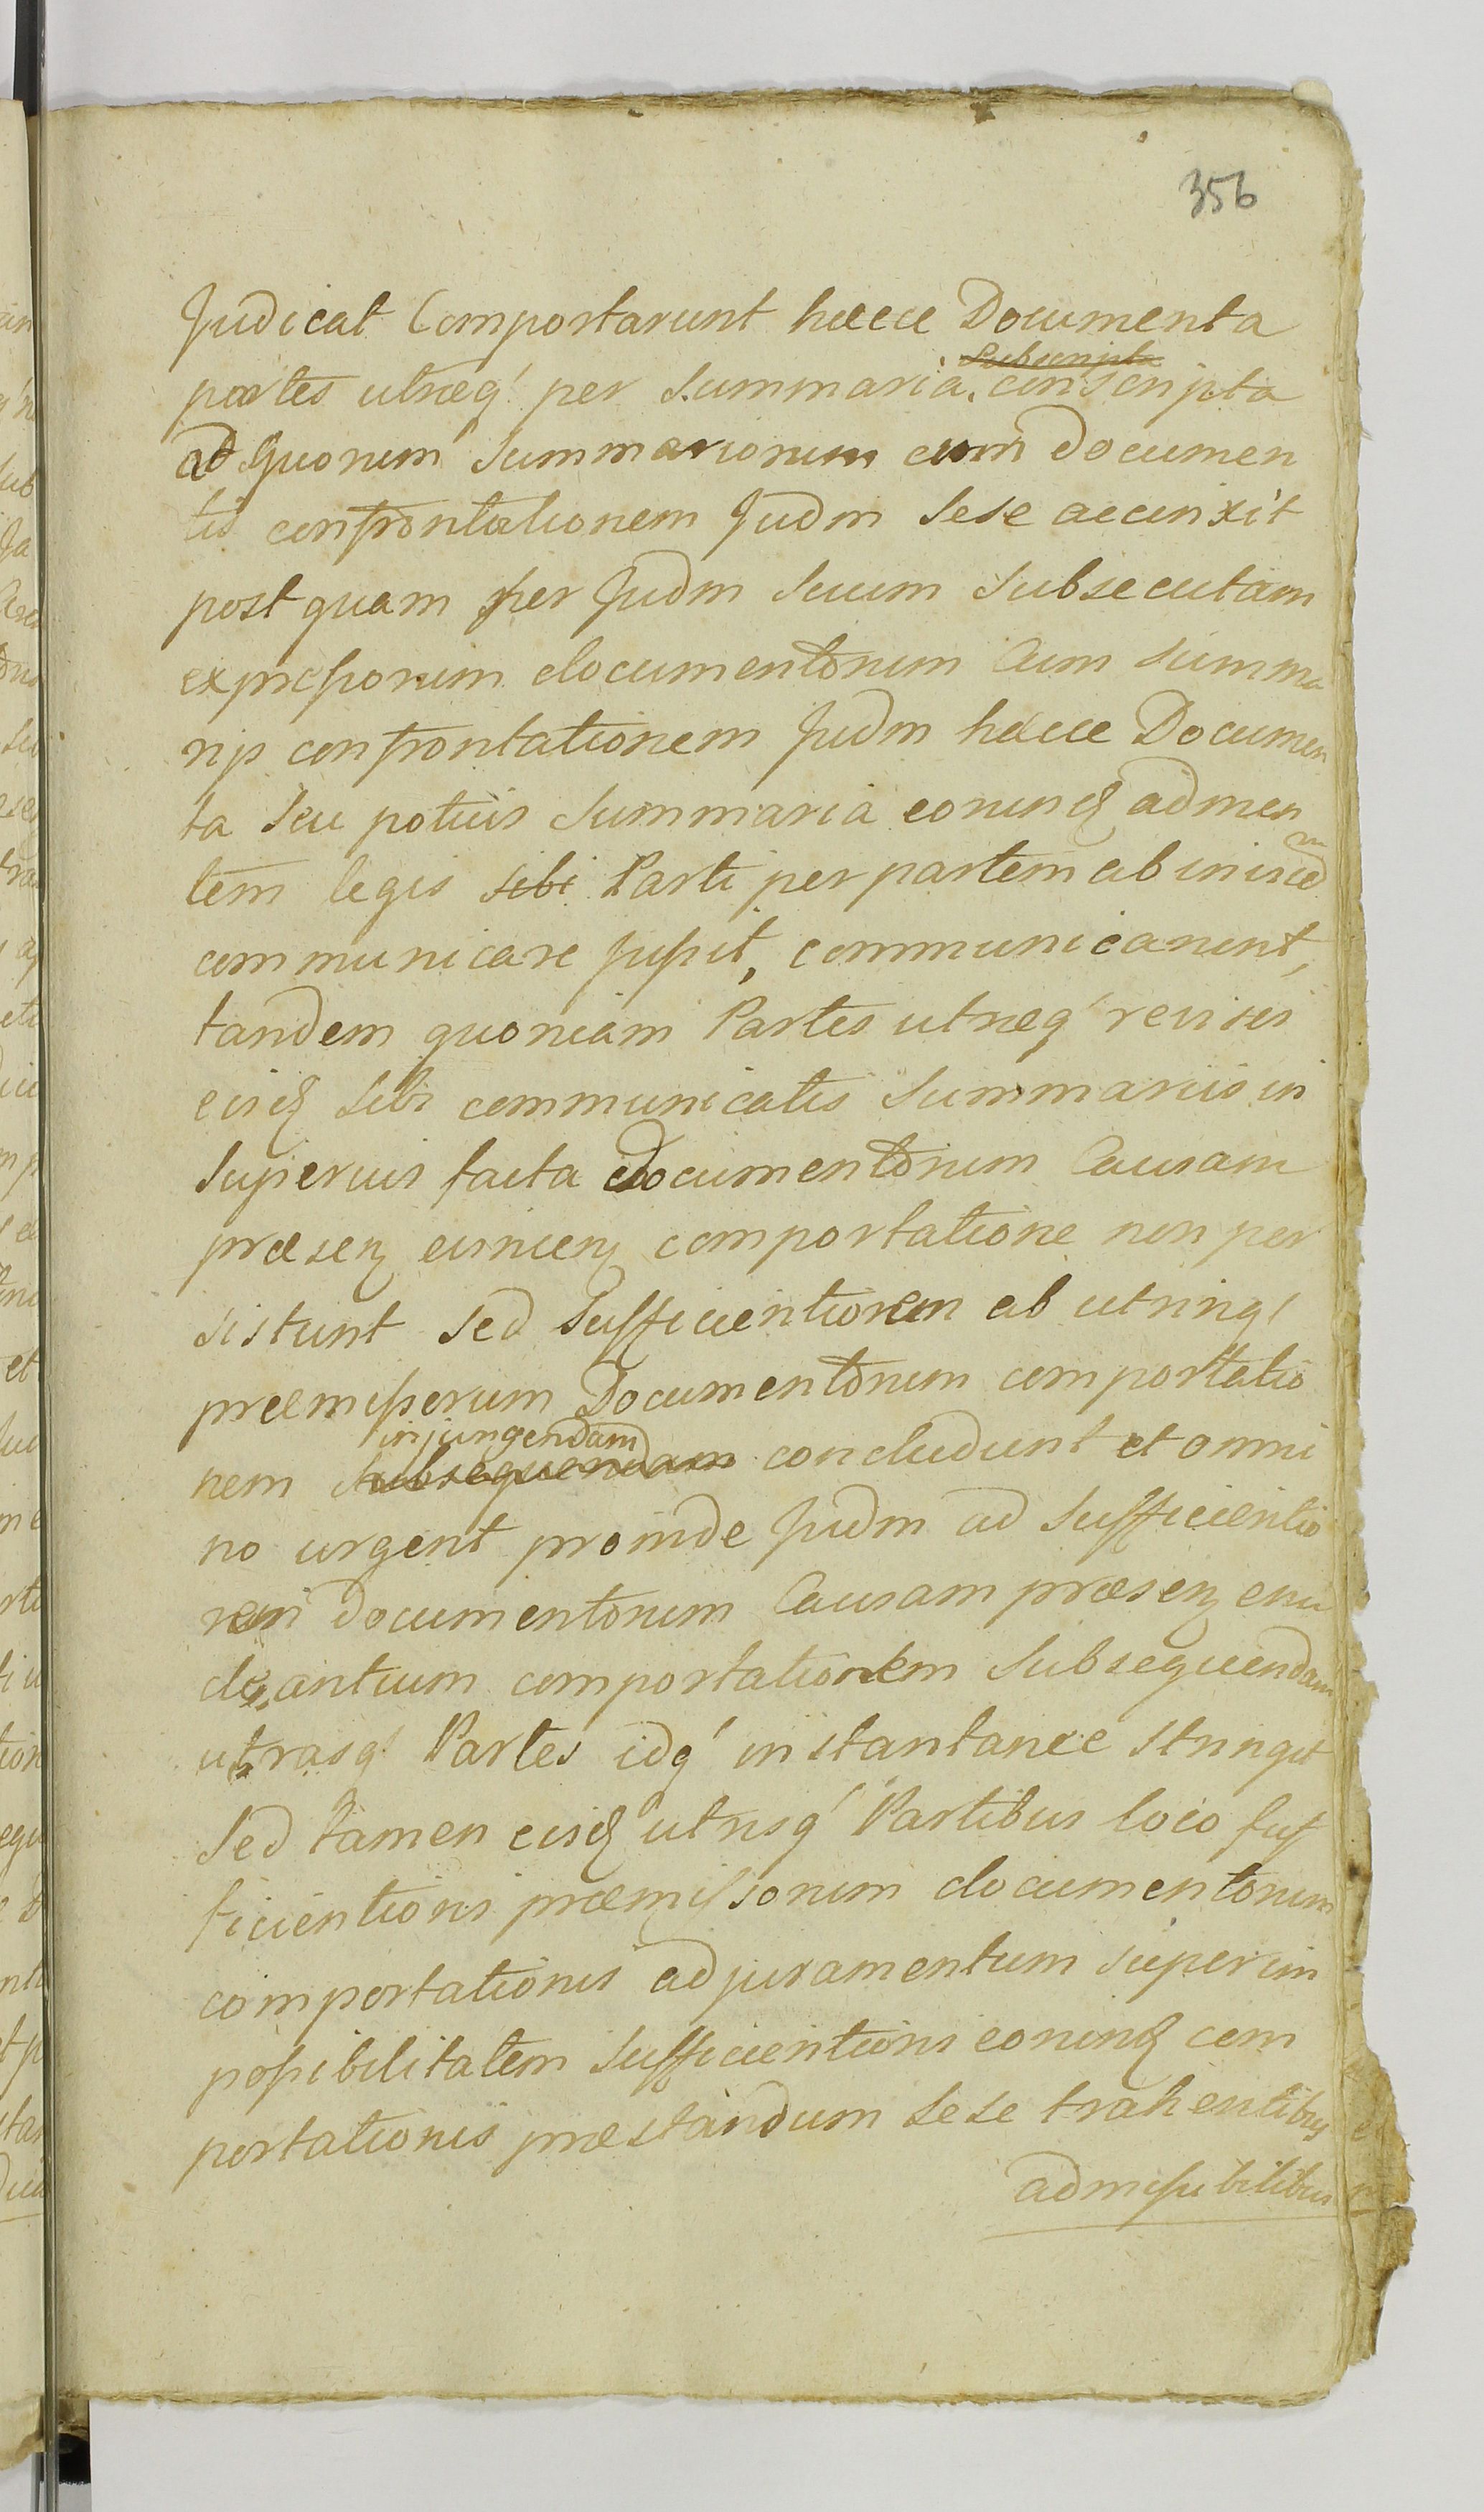 356
Judicat Comportarunt haece Documenta
Subscripta
partes utraeq' per Summaria conscripta
ad quorum Summariorum cum documen
tis confrontationem Judm Sese accinxit
post quam per Judm Suum Subsecutam
expressorum documentorum Cum Summa
rijs confrontationem Judm haece Documen
ta Seu potius Summaria eorund admen
tem legis sibi Parti per partem abinvicem
communicare jussit, communicarunt,
tandem quoniam Partes utraeq' revisis
eisd Sibi communicatis Summariis in
Superius facta documentorum Causam
praesen comportatione non per
sistunt Sed Sufficientiorem ab utrinq'
praemissorum Documentorum comportatio
injungendam
nem Subsequendam concludunt et omni
no urgent proinde Judm ad Sufficientio
rem documentorum Causam praesen enu
cleantium comportationem Subsequendam
utrasq' Partes idq' instantanee stringit
Sed tamen eisd utrisq' Partibus loco suf
ficientioris praemissorum documentorum
comportationis ad juramentum super im
possibilitatem Sufficientioris eorund com
portationis praestandum sese trahentibus
admissibilibus